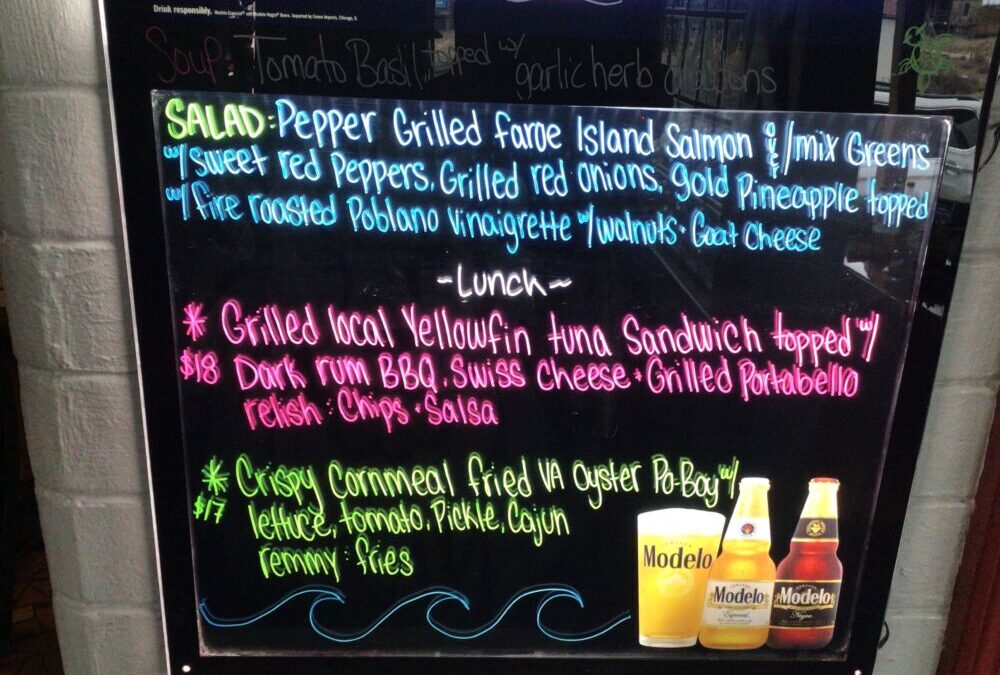 Drink responsibly.
Soup: Tomato Basil topped w/ garlic herb croutons
SALAD: Pepper Grilled Faroe Island Salmon over/mix Greens
w/ sweet red Peppers, Grilled red onions, gold Pineapple topped
w/ fire roasted Poblano Vinaigrette w/ walnuts + Goat Cheese
~Lunch~
* Grilled local Yellowfin tuna Sandwich topped w/
$18 Dark rum BBQ, Swiss Cheese + Grilled Portabello
relish : Chips + Salsa
* Crispy Cornmeal fried VA Oyster Po-Boy w/
$17 lettuce, tomato, Pickle, Cajun
remmy : fries
Modelo
Modelo
Especial
Modelo
Negra